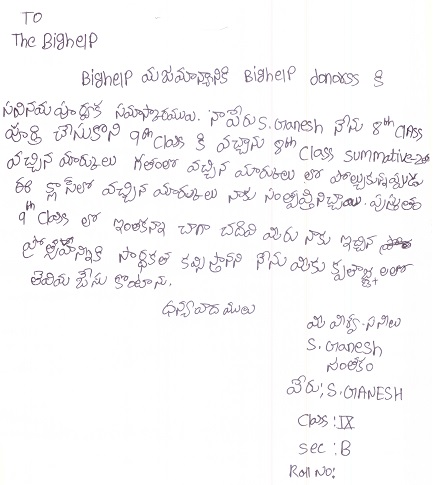 TO
The BigHelP
BigHelP యజమాన్యానికి BigHelP donorss కి
సవినయ పూర్వక నమాస్కారములు. నా పేరు S. Ganesh నేను 8th Class
పూర్తి చేసుకొని 9th Class కి వచ్చాను 8th Class Summative-2లో
వచ్చిన మార్కులు గతంలో వచ్చిన మార్కులు లో పోల్చుకున్నప్పుడు
ఈ క్లాస్‌లో వచ్చిన మార్కులు నాకు సంతృప్తినిచ్చాయి. ప్రస్తుతం
9th Class లో ఇంతకన్నా బాగా చదివి మీరు నాకు ఇచ్చిన
ప్రోత్సాహన్నికి సార్థకత కల్పిస్తానని నేను మీకు కృతజ్ఞతలతో
తెలియ జేసు కొంటాను.
ధన్యవాదములు
మీ విశ్వ
S. Ganesh
సంతకం
పేరు: S. GANESH
Class: IX
Sec: B
Roll No: